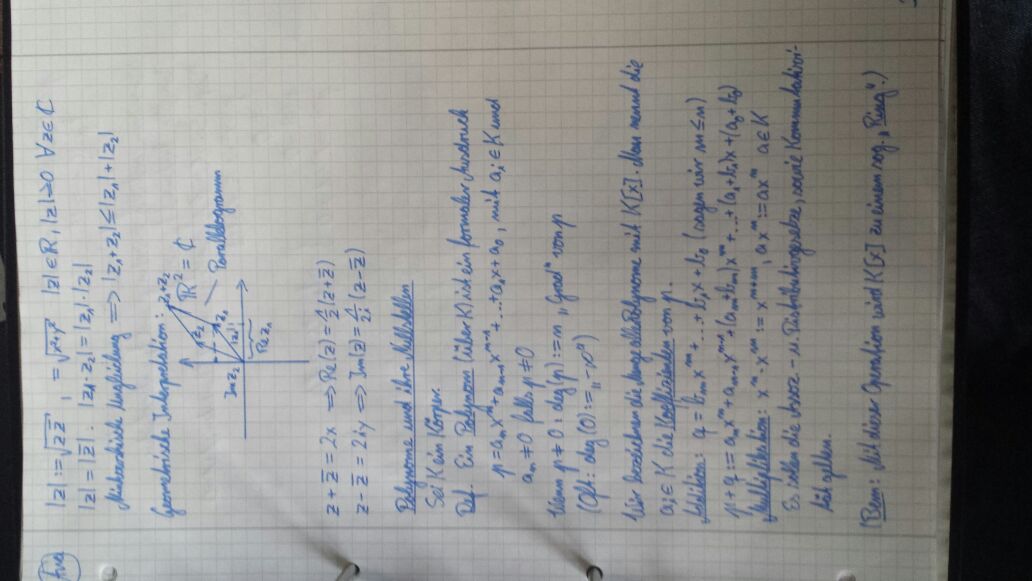 |z| := √(z z̄) , = √(x²+y²) |z| ∈ ℝ, |z| ≥ 0 ∀ z ∈ ℂ
|z| = |z̄|. |z₁·z₂| = |z₁|·|z₂|
Dreiecksungleichung ⟹ |z₁+z₂| ≤ |z₁|+|z₂|
Geometrische Interpretation:
z₁+z₂
ℝ² = ℂ
Parallelogramm
Im z₂
z₂
z₁
|z₂|
Re z₂
z + z̄ = 2x ⟹ Re(z) = ½(z+z̄)
z − z̄ = 2iy ⟹ Im(z) = 1/2i (z−z̄)
Polynome und ihre Nullstellen
Sei K ein Körper.
Def. Ein Polynom (über K) ist ein formaler Ausdruck
p = aₙxⁿ + aₙ₋₁xⁿ⁻¹ + ... + a₁x + a₀, mit aᵢ ∈ K und
aₙ ≠ 0 falls p ≠ 0
Wenn p ≠ 0 : deg(p) := n „Grad" von p
(Oft: deg(0) := „−∞")
Wir bezeichnen die Menge aller Polynome mit K[x]. Man nennt die
aᵢ ∈ K die Koeffizienten von p.
Addition: q = bₘxᵐ + ... + b₁x + b₀ (sagen wir m ≤ n)
p + q := aₙxⁿ + aₙ₋₁xⁿ⁻¹ + (aₘ+bₘ)xᵐ + ... + (a₁+b₁)x + (a₀+b₀)
Multiplikation: xⁿ · xᵐ := xⁿ⁺ᵐ, axᵐ := axᵐ a ∈ K
Es sollen die Assoz.- u. Distributivgesetze, sowie Kommutativi-
tät gelten.
(Bem: Mit dieser Operation wird K[x] zu einem sog. „Ring".)